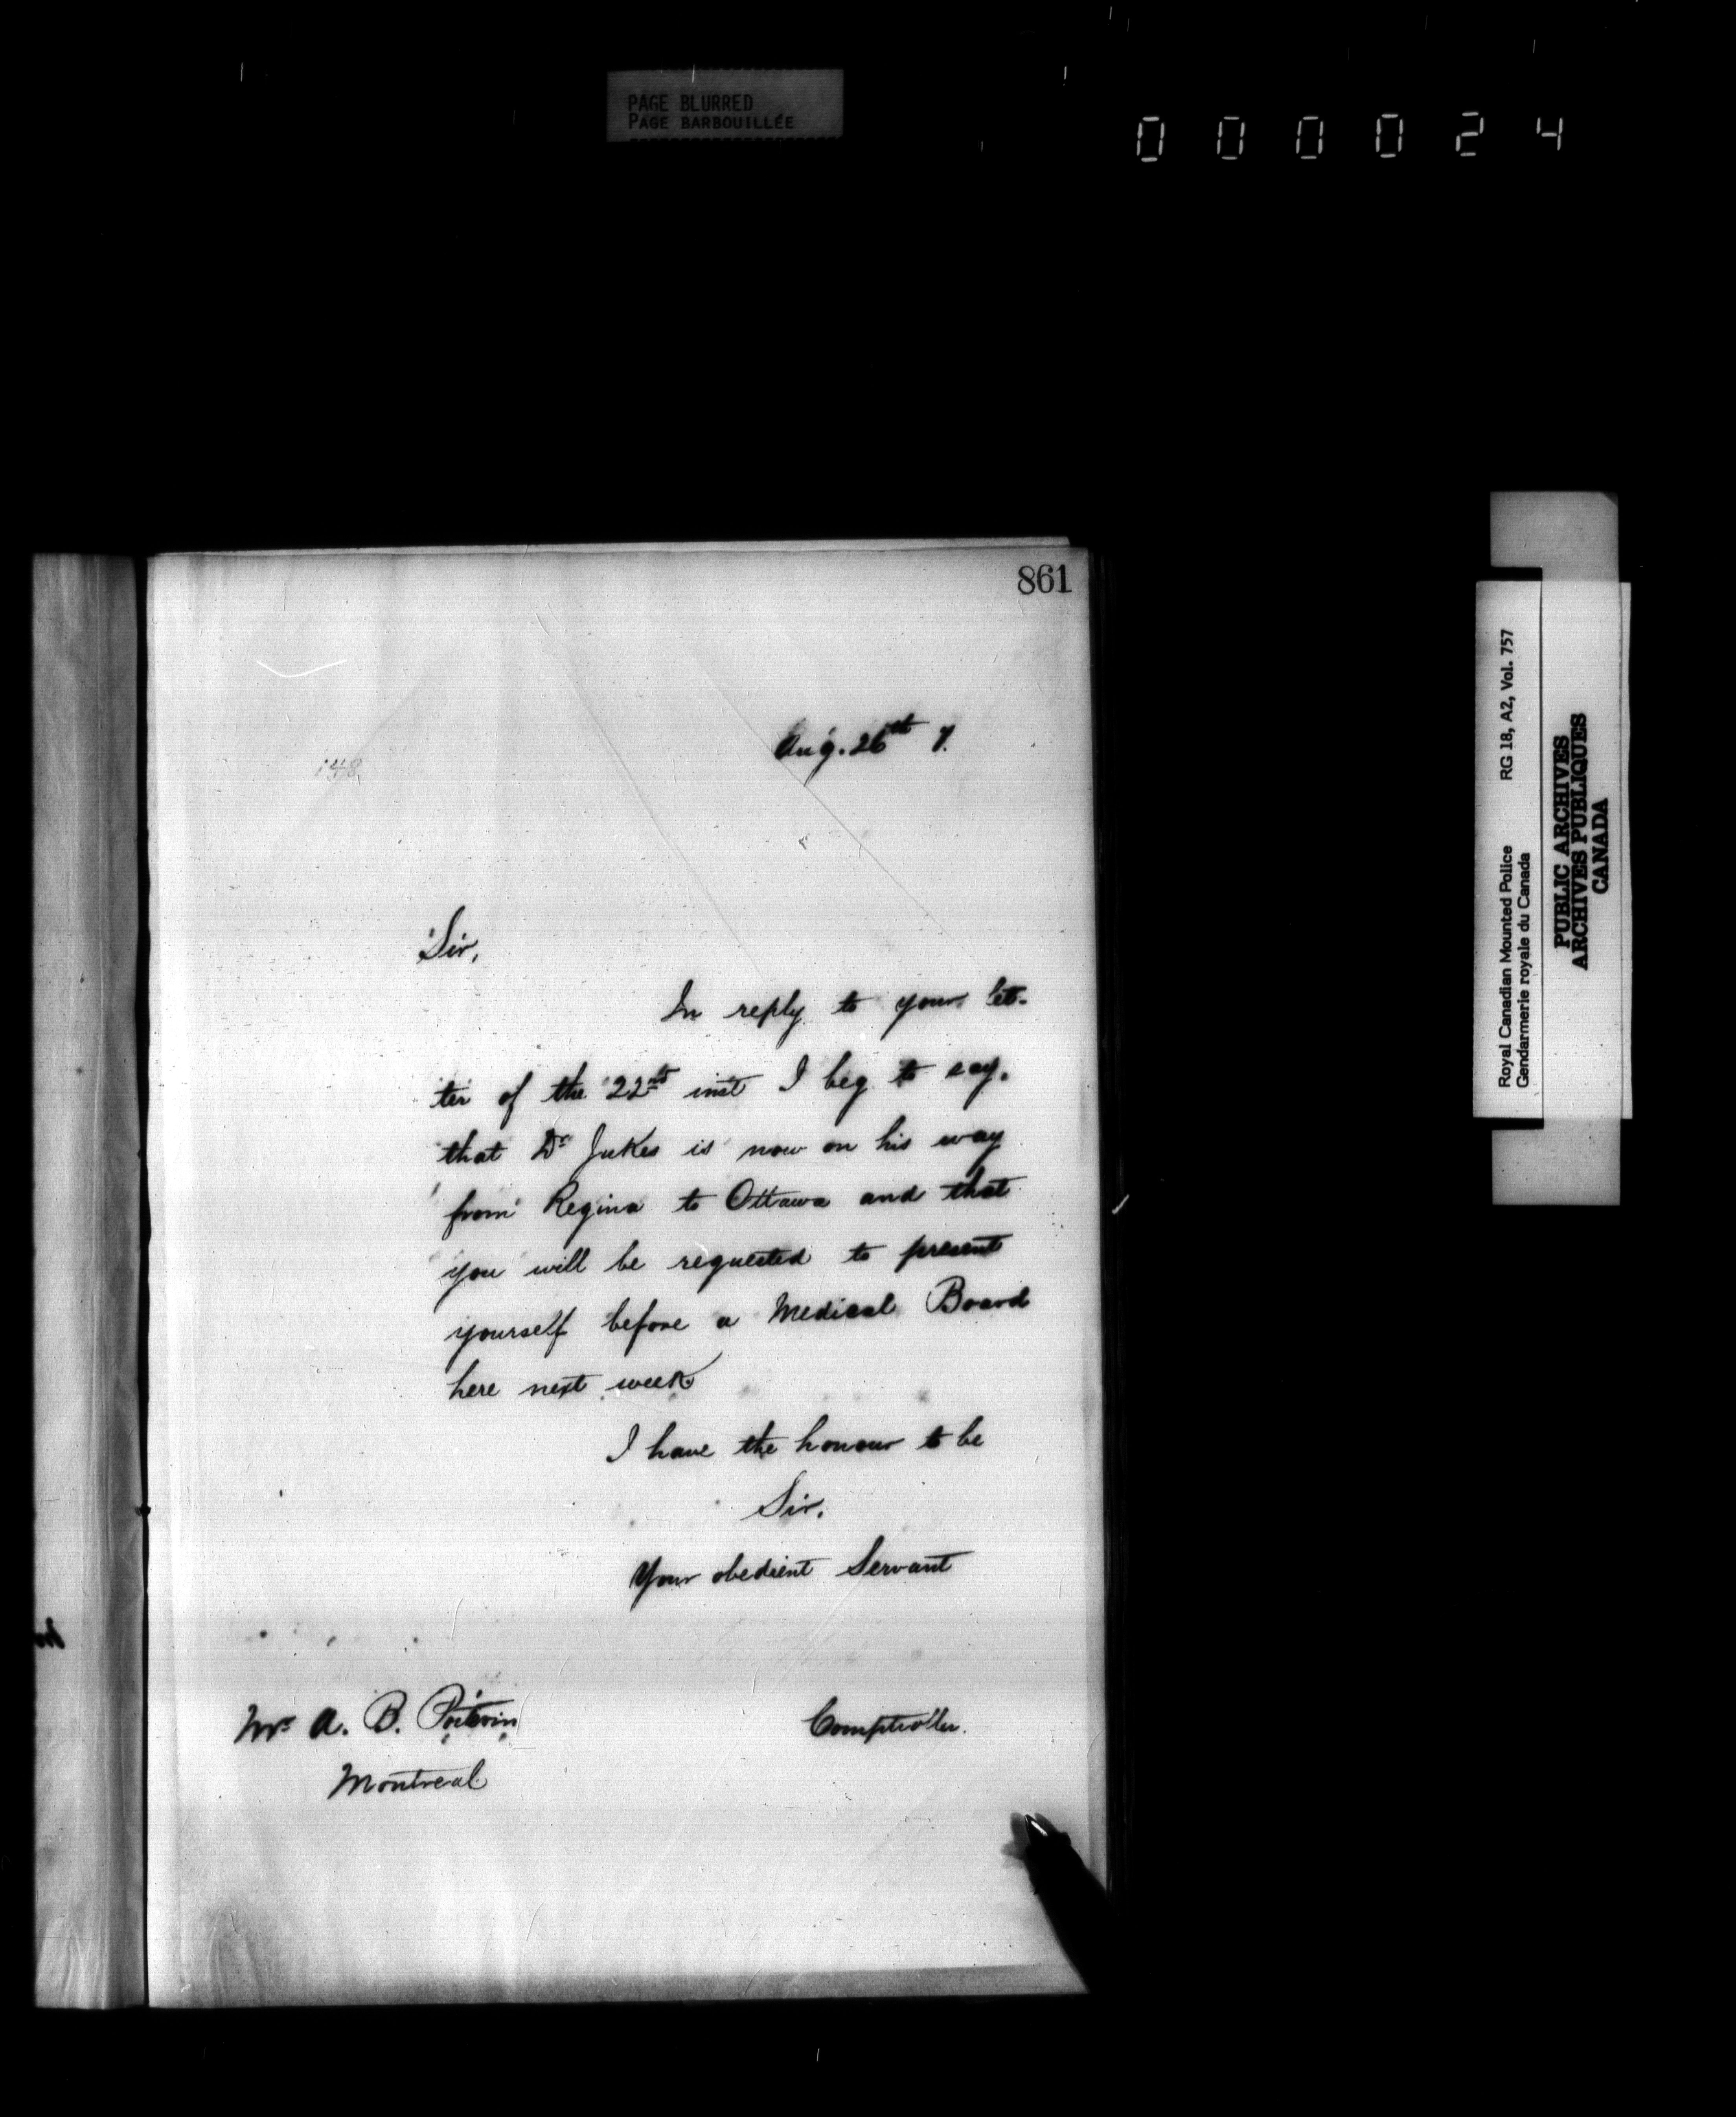 PAGE BLURRED
PAGE BARBOUILLÉE
000024
861
Aug. 26th 7.
148
Sir,
In reply to your let-
ter of the 22nd inst I beg to say.
that Dr Jukes is now on his way
from Regina to Ottawa and that
you will be requested to present
yourself before a Medical Board
here next week
I have the honour to be
Sir.
Your obedient Servant
Comptroller.
Mr A. B. Poitevin
Montreal
Royal Canadian Mounted Police RG 18, A2, Vol. 757
Gendarmerie royale du Canada
PUBLIC ARCHIVES
ARCHIVES PUBLIQUES
CANADA